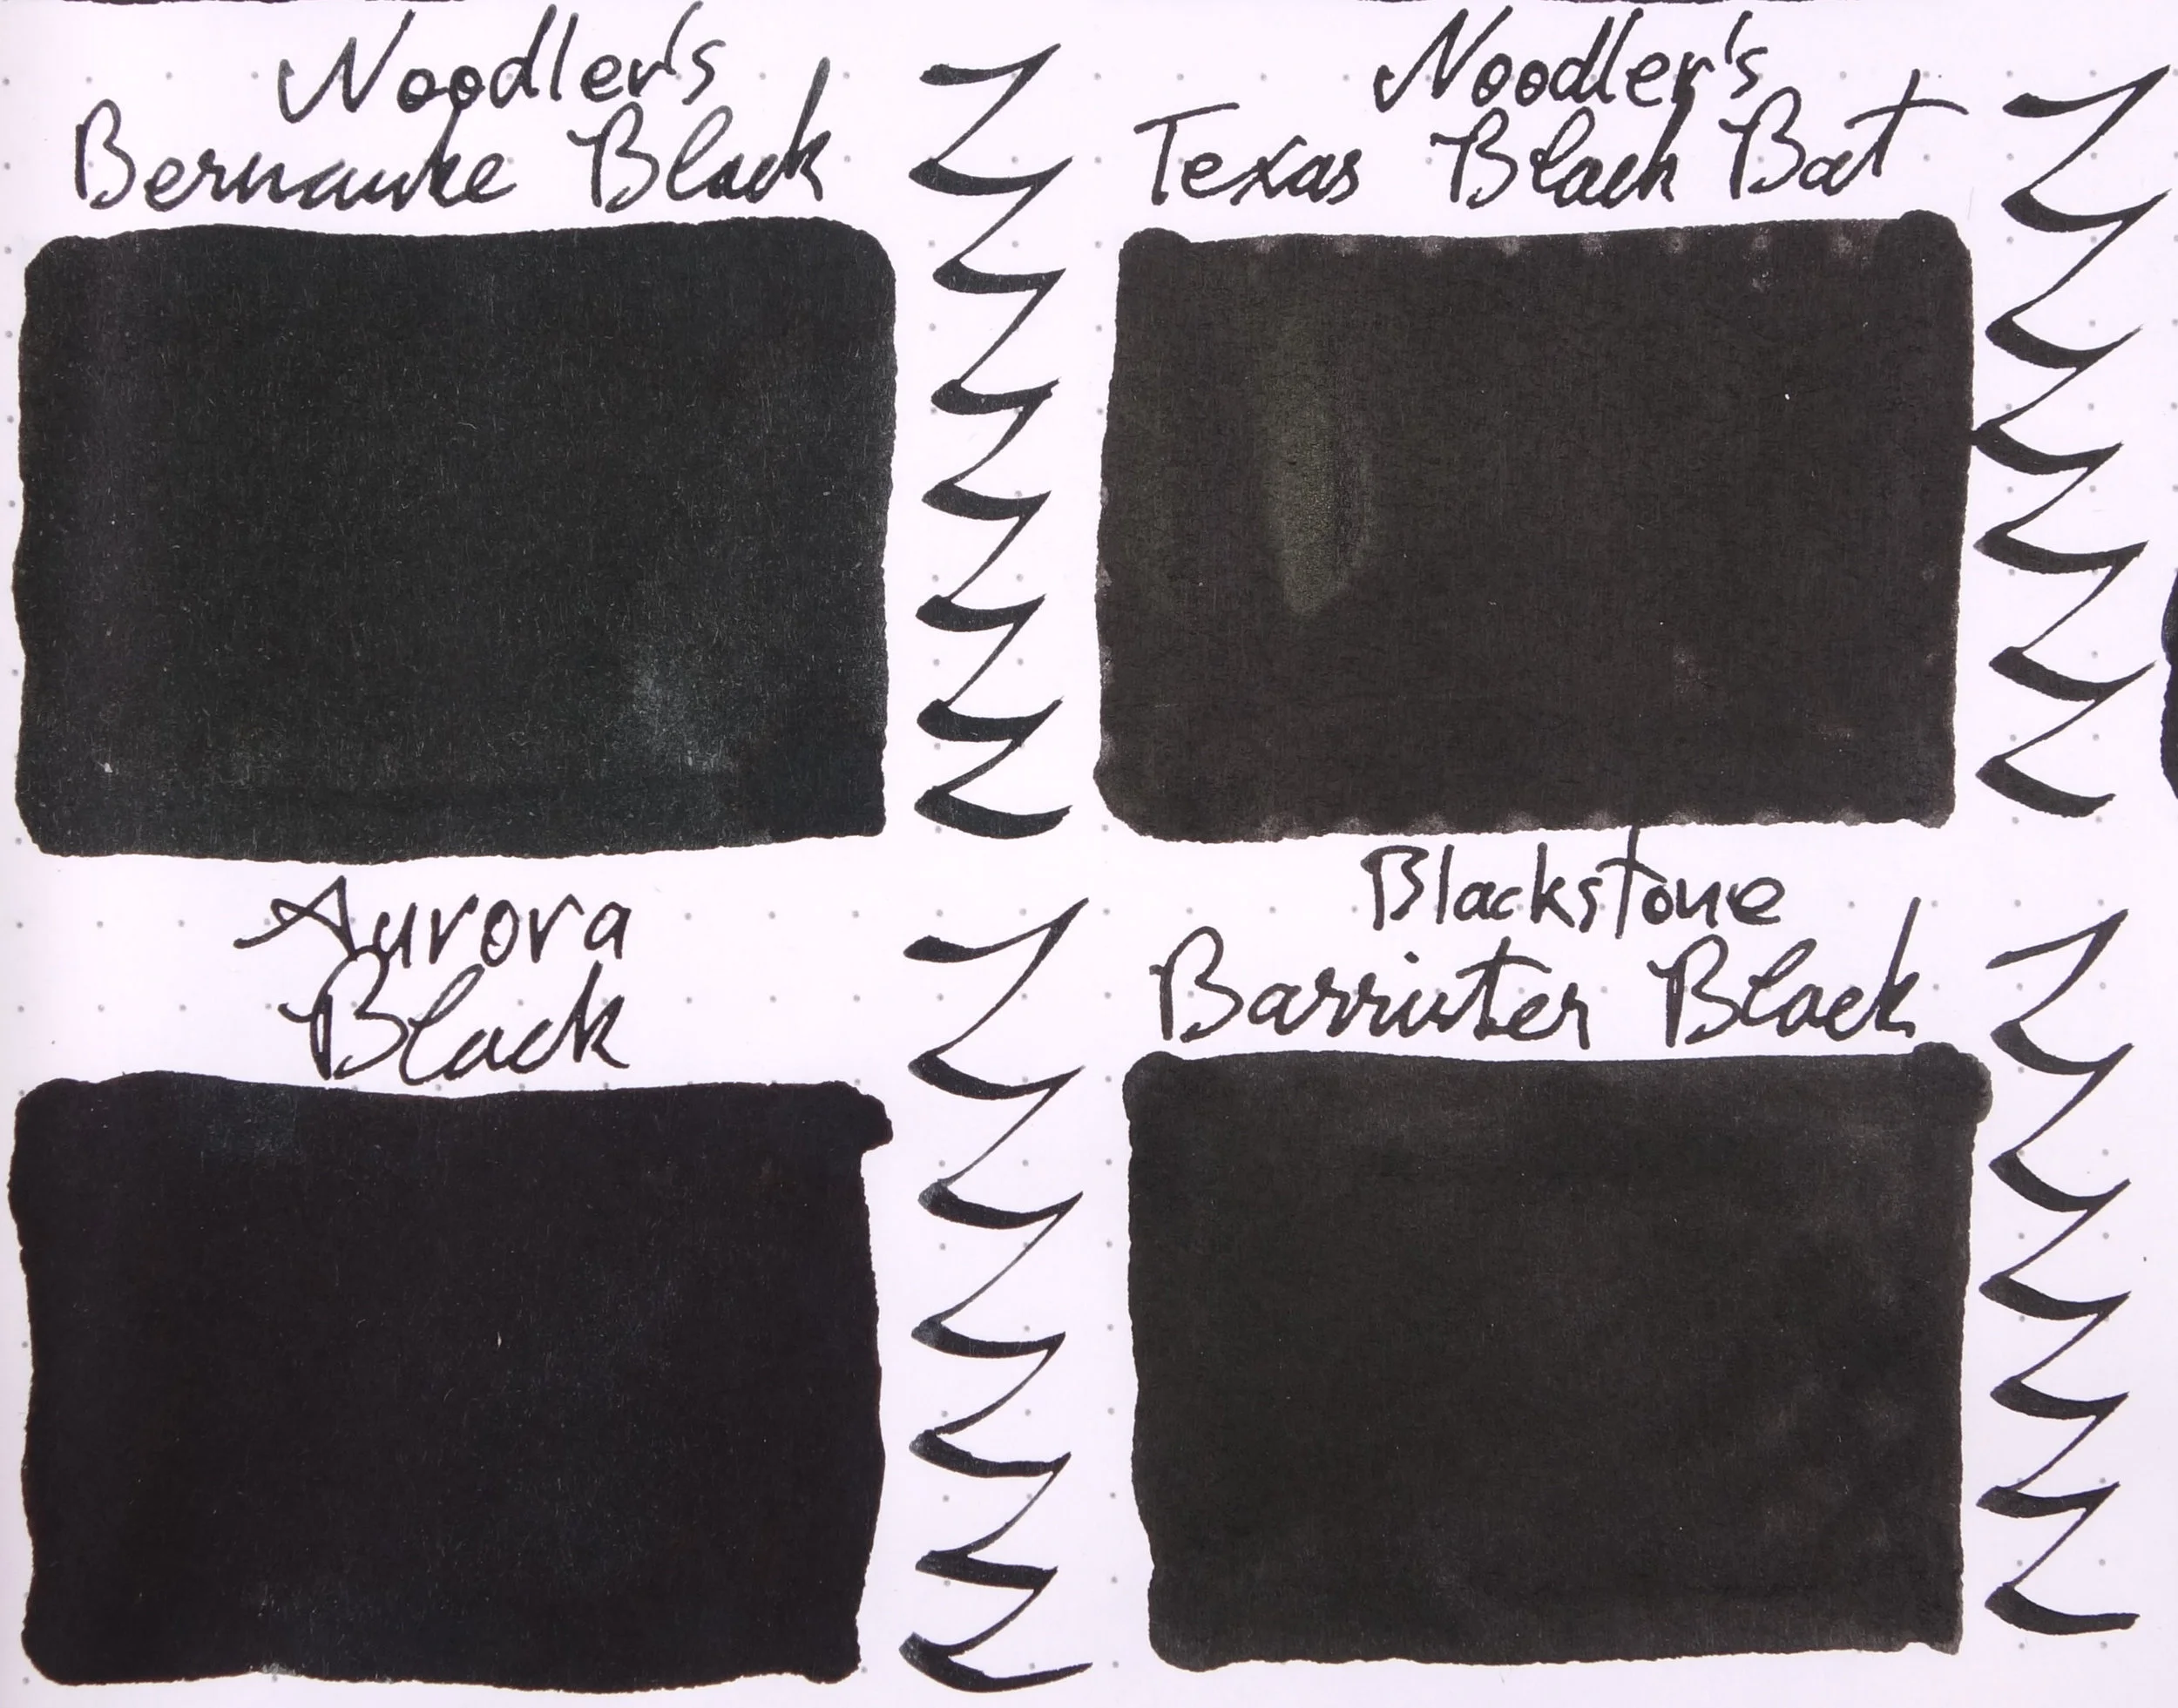 Noodler's
Bernanke Black
Noodler's
Texas Black Bat
Aurora
Black
Blackstone
Barrister Black